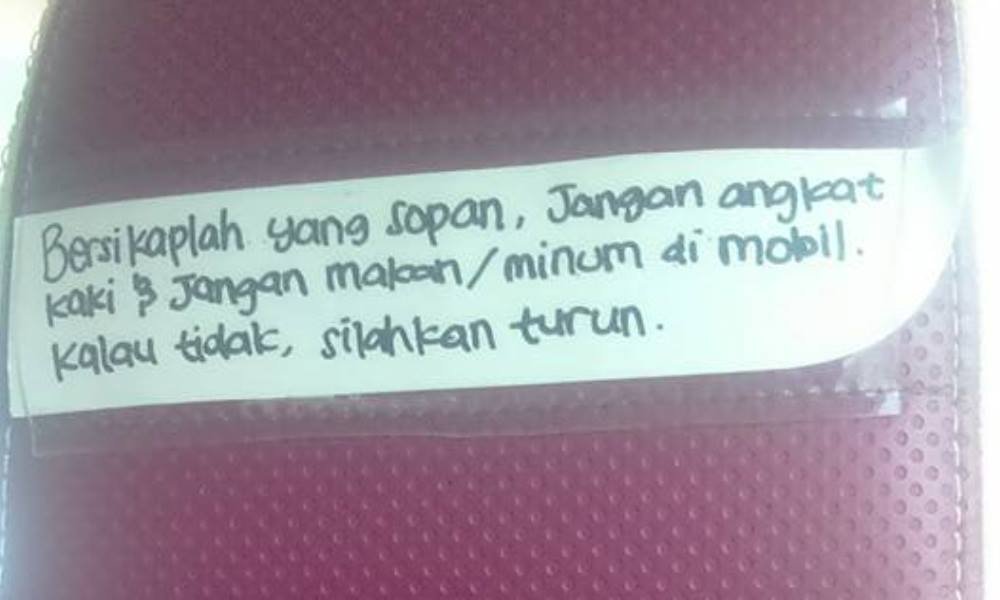 Bersikaplah yang sopan, Jangan angkat
kaki & Jangan makan/minum di mobil.
Kalau tidak, silahkan turun.